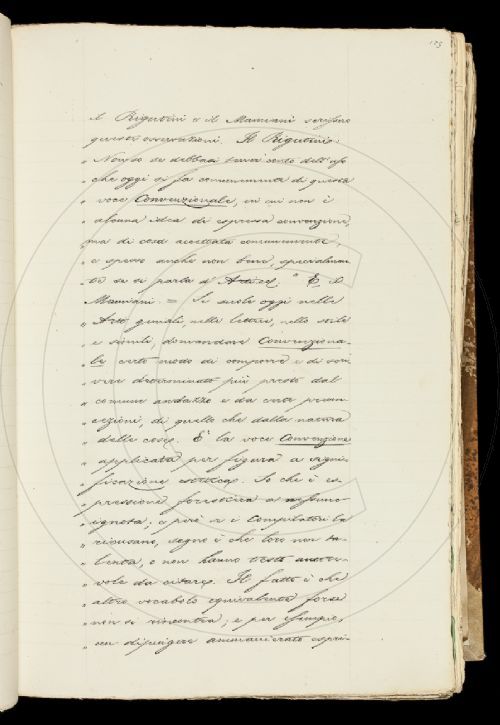 125
il Rigutini e il Mamiani scrissero
queste osservazioni. Il Rigutini:
„ Non so se debbasi tener conto dell'uso
„ che oggi si fa comunemente di questa
„ voce Convenzionale, in cui non è
„ alcuna idea di espressa convenzione,
„ ma di cosa accettata comunemente,
„ e spesso anche non bene, specialmen-
„ te se si parla d'Arti. " E il
Mamiani = Si suole oggi nelle
„ Arti geniali, nelle lettere, nello stile
„ e simili, domandare Convenziona-
„ le certo modo di comporre e di scri-
„ vere determinato più presto dal
„ comune andazzo e da certe preven-
„ zioni, di quello che dalla natura
„ delle cose. È la voce Convenzione
„ applicata per figura a signi-
„ ficazione estetica. So che è es-
„ pressione forestiera a nessuno
„ ignota; e però se i Compilatori la
„ ricusano, segno è che loro non ta-
„ lenta, e non hanno testo autore-
„ vole da citare. Il fatto è che
„ altro vocabolo equivalente forse
„ non si rincontra; e per esempio,
„ un dipingere ammanierato espri-